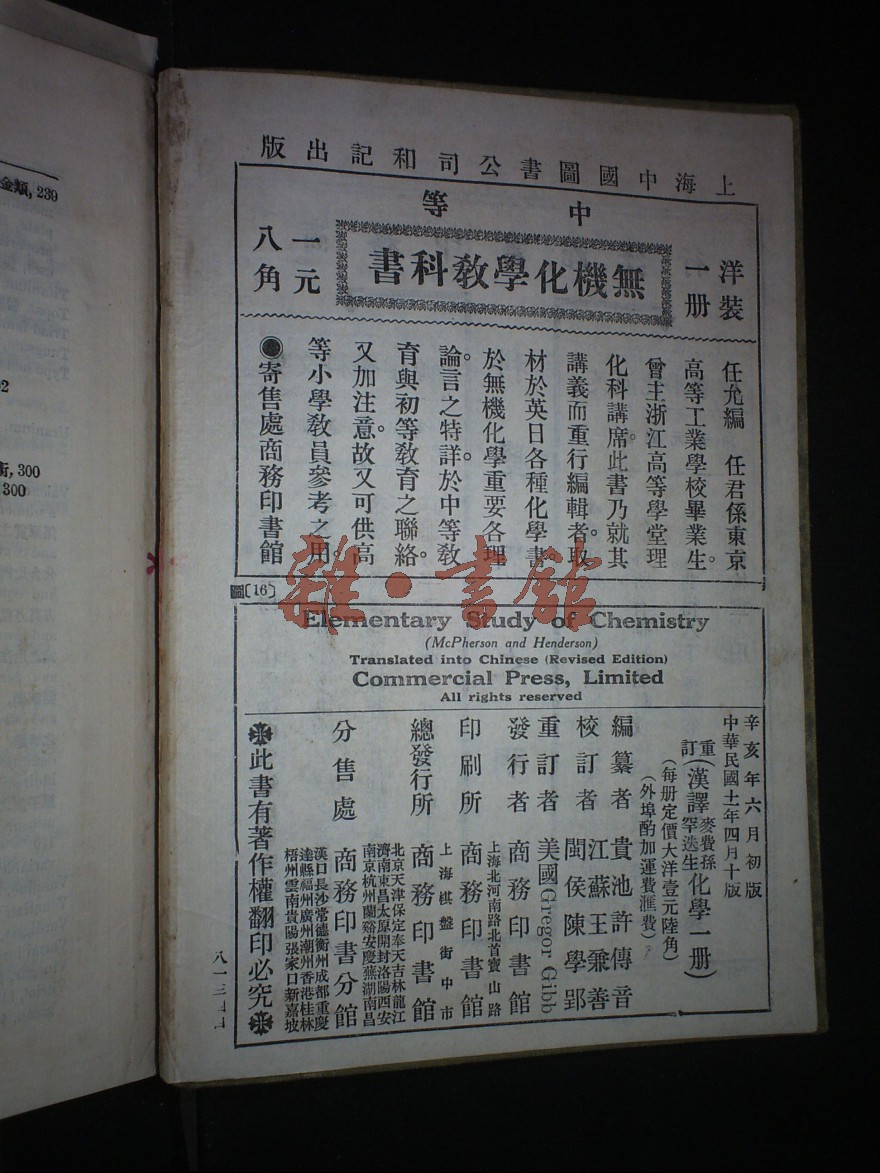 上海中國圖書公司和記出版
洋裝
一册
中等
無機化學教科書
一元
八角
任允編　任君係東京
高等工業學校畢業生。
曾主浙江高等學堂理
化科講席。此書乃就其
講義而重行編輯者。取
材於英日各種化學書
於無機化學重要各理
論言之特詳。於中等教
育與初等教育之聯絡。
又加注意。故又可供高
等小學教員參考之用。
●寄售處商務印書館
[16]
雜·書館
Elementary Study of Chemistry
(McPherson and Henderson)
Translated into Chinese (Revised Edition)
Commercial Press, Limited
All rights reserved
辛亥年六月初版
中華民國十一年四月十版
重訂(漢譯麥費孫罕迭生化學一册)
(每册定價大洋壹元陸角)
(外埠酌加運費滙費)
編纂者　貴池許傳音
江蘇王兼善
校訂者　閩侯陳學郢
重訂者　美國Gregor Gibb
發行者　商務印書館
上海北河南路北首寶山路
印刷所　商務印書館
上海棋盤街中市
總發行所　商務印書館
北京天津保定奉天吉林龍江
濟南東昌太原開封洛陽西安
南京杭州蘭谿安慶蕪湖南昌
分售處　商務印書分館
漢口長沙常德衡州成都重慶
達縣福州廣州潮州香港桂林
梧州雲南貴陽張家口新嘉坡
此書有著作權翻印必究
金類, 239
街, 300
300